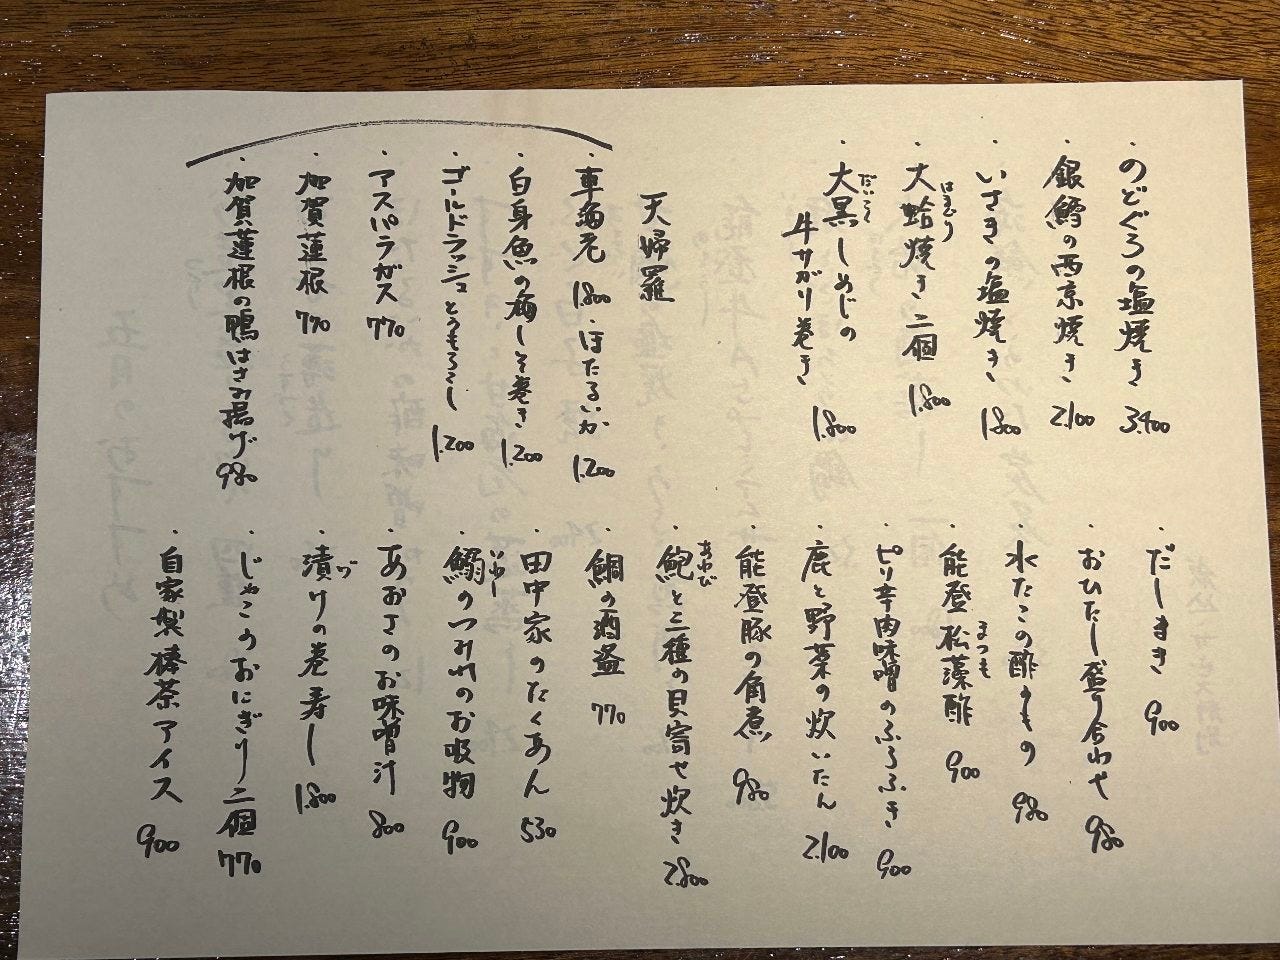 ・のどぐろの塩焼き 3.400
・銀鱈の西京焼き 2.100
・いさきの塩焼き 1.800
・大蛤焼き 二個 1.800
はまぐり
・大黒しめじの
だいこく
牛サガリ巻き 1.800
天婦羅
・車海老 1.800 ・ほたるいか 1.200
・白身魚の梅しそ巻き 1.200
・ゴールドラッシュとうもろこし 1.200
・アスパラガス 770
・加賀蓮根 770
・加賀蓮根の鴨はさみ揚げ 980
・だしまき 900
・おひたし盛り合わせ 980
・水たこの酢のもの 980
・能登松藻酢 900
まつも
・ピリ辛肉味噌のふろふき 900
・鹿と野菜の炊いたん 2.100
・能登豚の角煮 980
・鮑と三種の貝寄せ炊き 2.800
あわび
・鯛の酒盗 770
・田中家のたくあん 530
・鰯のつみれのお吸物 900
いわし
・あおさのお味噌汁 800
・漬けの巻寿し 1.800
づ
・じゃこのおにぎり 二個 770
・自家製棒茶アイス 900